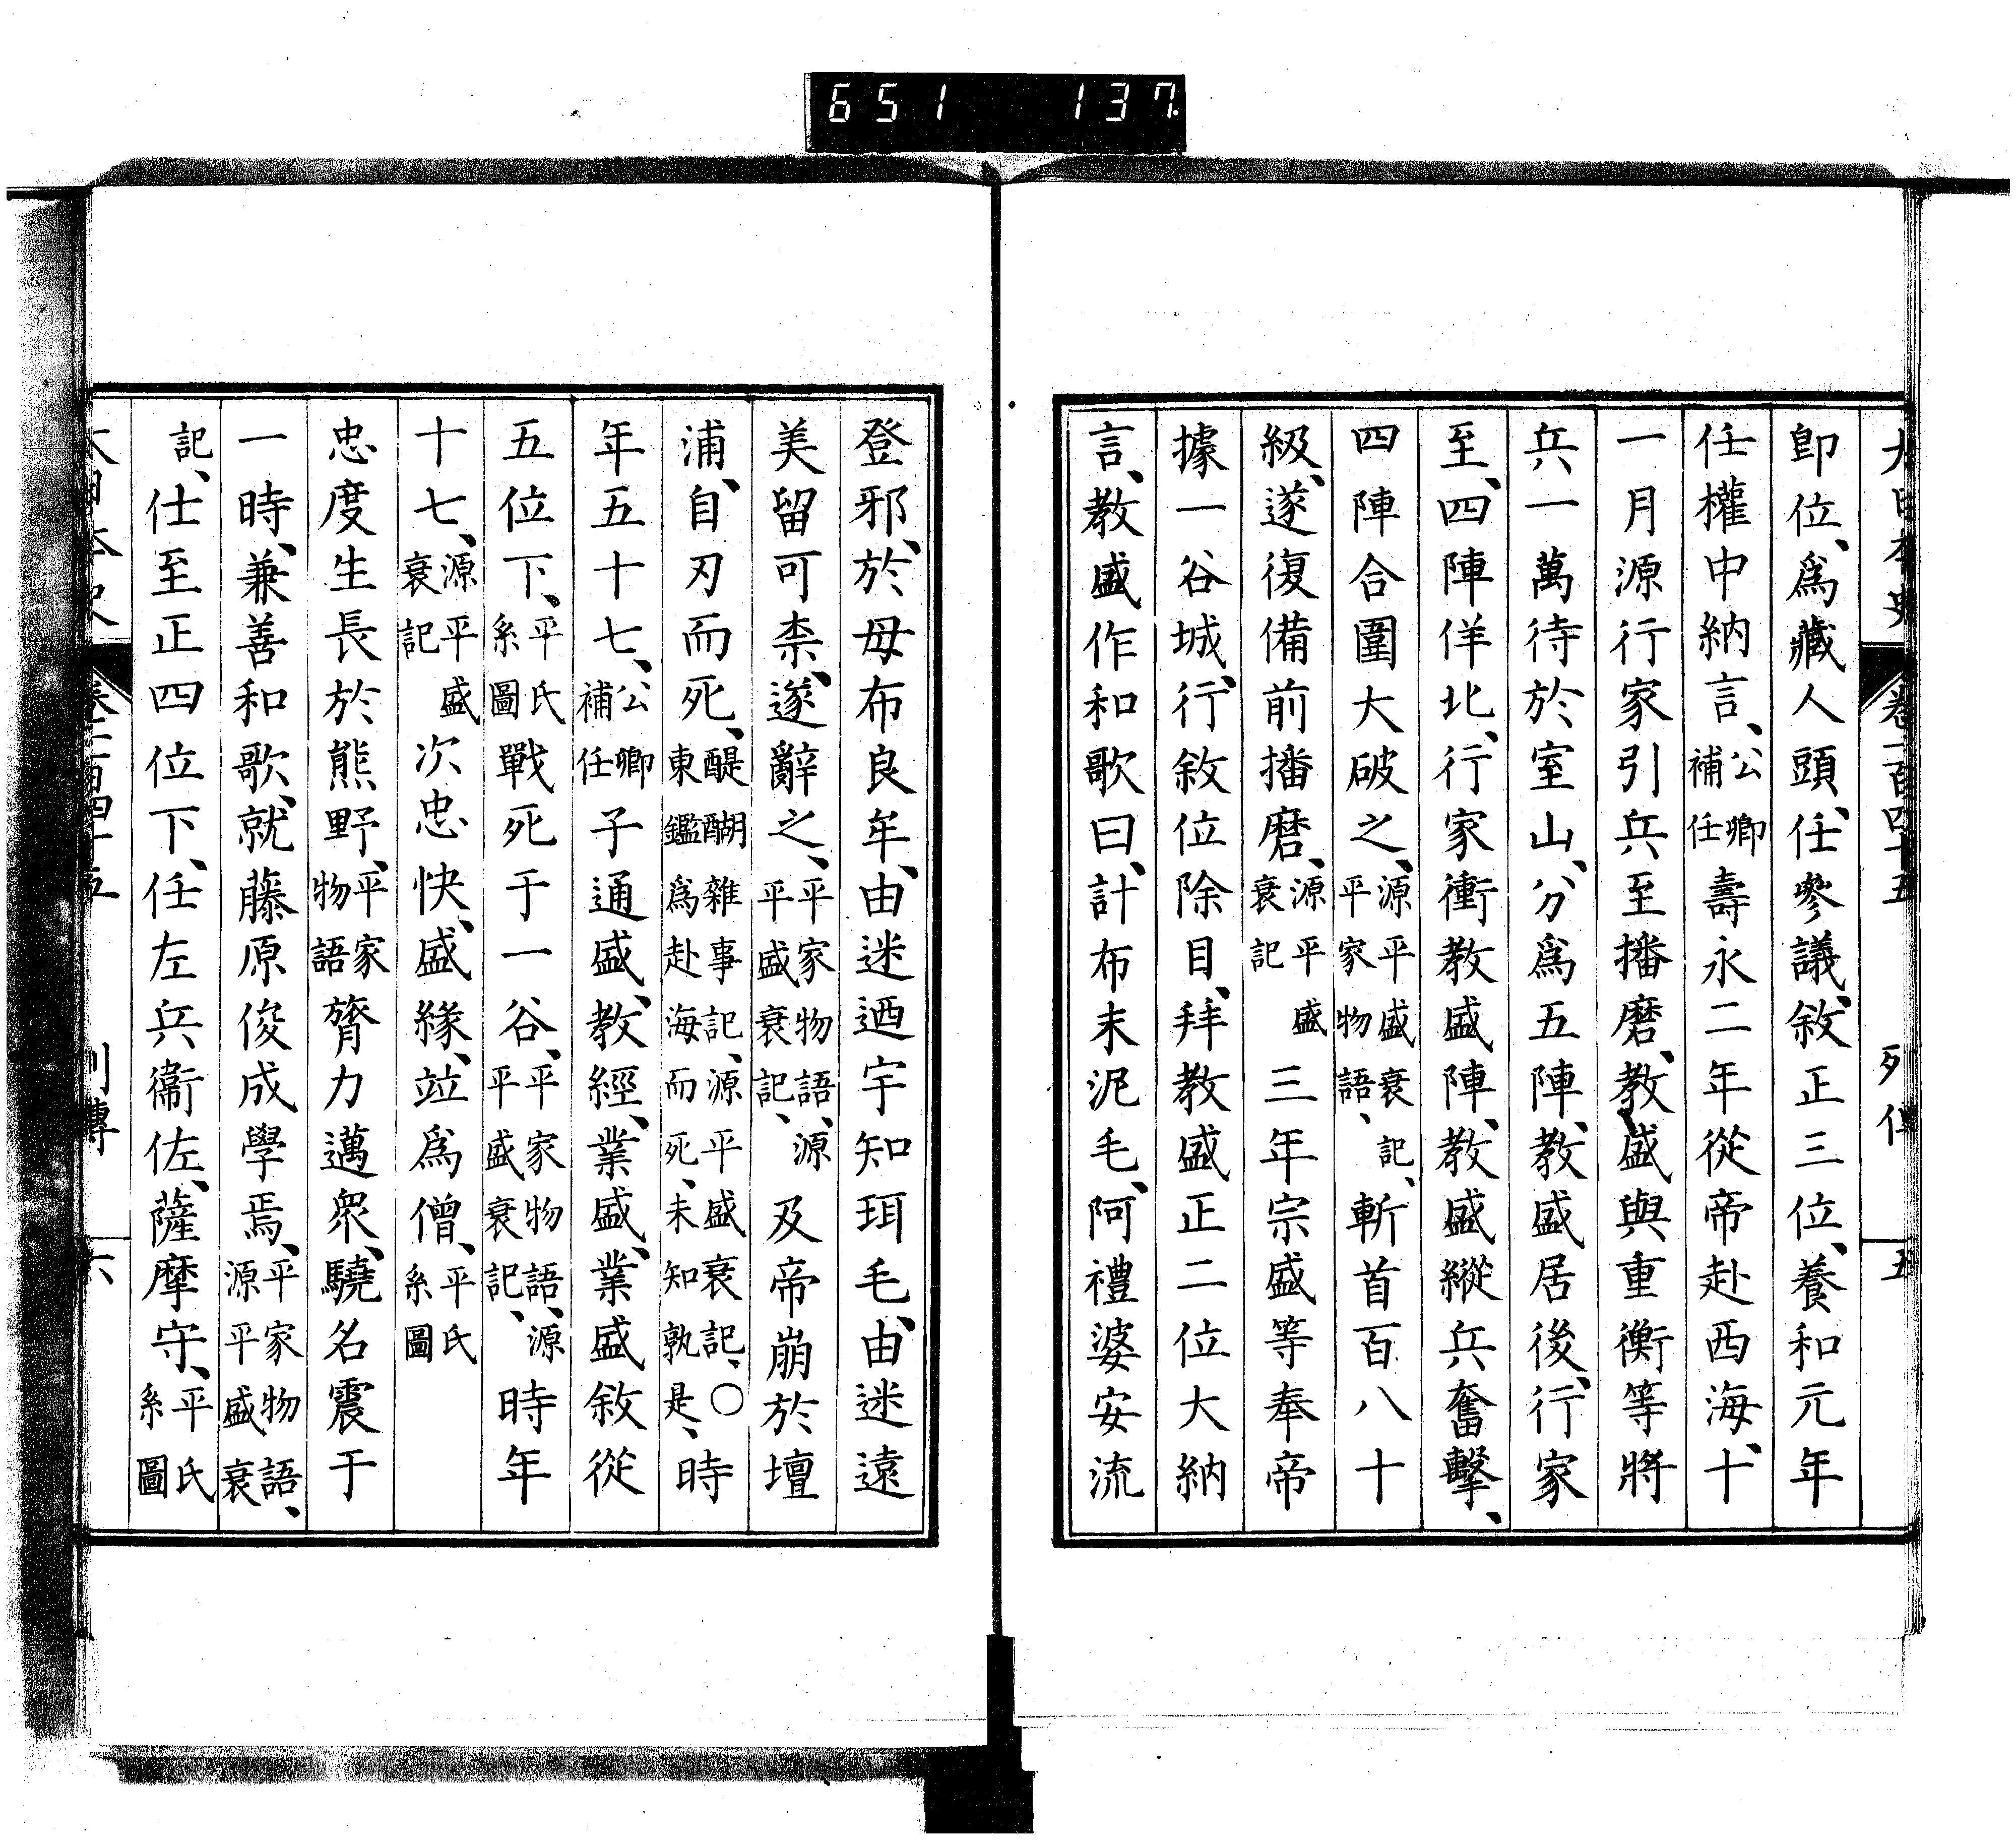 651 137
大日本史 卷一百四十五 列傳 五
卽位、爲藏人頭、任參議、敘正三位、養和元年
任權中納言、公卿補任壽永二年從帝赴西海、十
一月源行家引兵至播磨、教盛與重衡等將
兵一萬待於室山、分爲五陣、教盛居後、行家
至、四陣佯北、行家衝教盛陣、教盛縱兵奮擊、
四陣合圍大破之、源平盛衰記、平家物語、斬首百八十
級、遂復備前播磨、源平盛衰記三年宗盛等奉帝
據一谷城、行敘位除目、拜教盛正二位大納
言、教盛作和歌曰、計布末泥毛、阿禮婆安流
登邪、於毋布良年、由迷迺宇知珥毛、由迷遠
美留可柰、遂辭之、平家物語、源平盛衰記、及帝崩於壇
浦、自刃而死、醍醐雜事記、源平盛衰記、〇東鑑爲赴海而死、未知孰是、時
年五十七、公卿補任子通盛、教經、業盛、業盛敘從
五位下、平氏系圖戰死于一谷、平家物語、源平盛衰記、時年
十七、源平盛衰記次忠快、盛緣、竝爲僧、平氏系圖
忠度生長於熊野、平家物語膂力邁衆、驍名震于
一時、兼善和歌、就藤原俊成學焉、平家物語、源平盛衰
記、仕至正四位下、任左兵衞佐、薩摩守、平氏系圖
大日本史 卷一百四十五 列傳 六